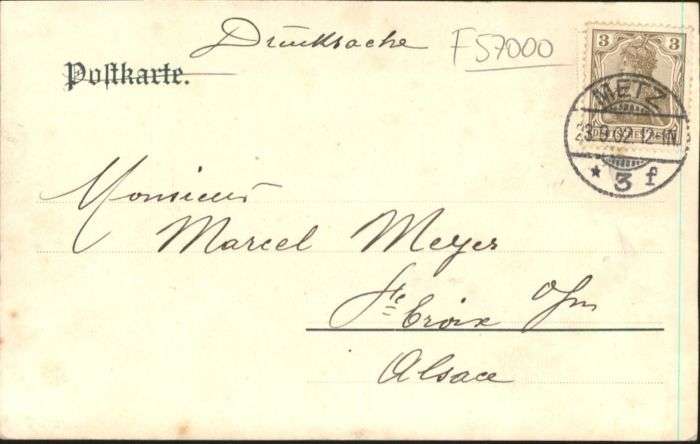 Drucksache
F 57000
Postkarte.
3 3
METZ
23.9.02.12-1N.
* 3 f
Monsieur
Marcel Meyer
Ste Croix a/m
Alsace